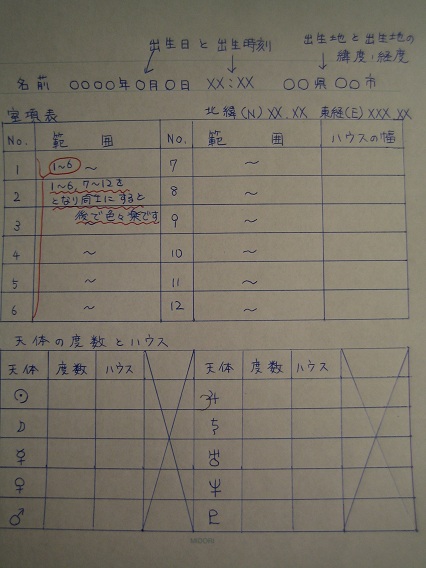 出生日と出生時刻
出生地と出生地の
緯度・経度
名前 〇〇〇〇年〇月〇日 XX:XX 〇〇県〇〇市
室項表 北緯(N)XX.XX 東経(E)XXX.XX
No. 範囲 No. 範囲 ハウスの幅
1 1~6 ~ 7 ~
2 1~6,7~12を 8 ~
となり同士にすると
3 後で色々楽です 9 ~
4 ~ 10 ~
5 ~ 11 ~
6 ~ 12 ~
天体の度数とハウス
天体 度数 ハウス 天体 度数 ハウス
☉ ♃
☽ ♄
☿ ♅
♀ ♆
♂ ♇
MIDORI